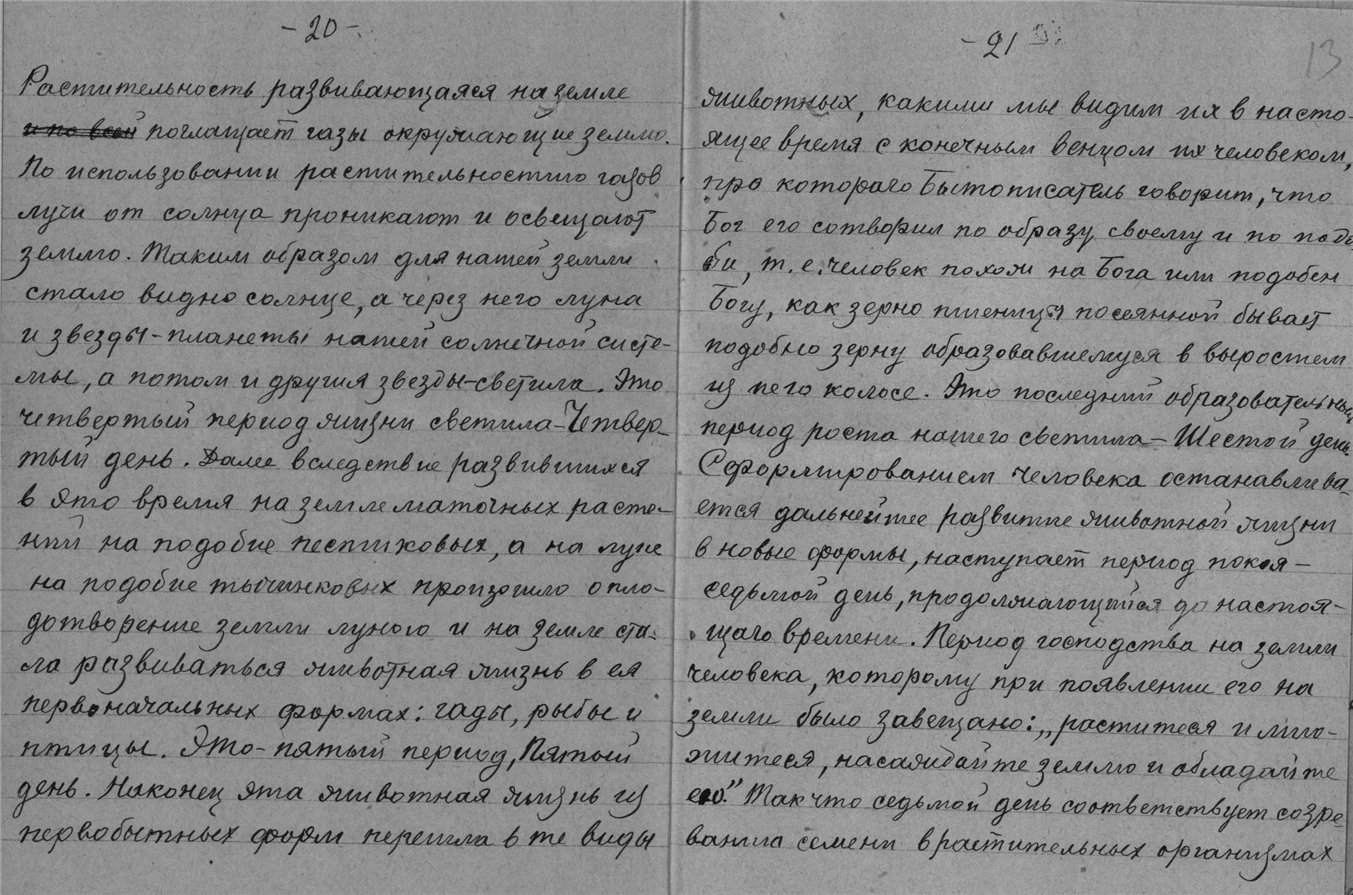 - 20 -
Растительность развивающаяся на земле
и по всей поглащает газы окружающие землю.
По использовании растительностию газов
лучи от солнца проникают и освещают
землю. Таким образом для нашей земли
стало видно солнце, а через него луна
и звезды-планеты нашей солнечной систе-
мы, а потом и другия звезды-светила. Это
четвертый период жизни светила-Четвер-
тый день. Далее вследствие развившихся
в это время на земле маточных расте-
ний на подобие пестиковых, а на луне
на подобие тычинковых произошло опло-
дотворение земли луною и на земле ста-
ла развиваться животная жизнь в ея
первоначальных формах: гады, рыбы и
птицы. Это-пятый период, Пятый
день. Наконец эта животная жизнь из
первобытных форм перешла в те виды
- 21
13
животных, какими мы видим их в насто-
ящее время с конечным венцом их человеком,
про котораго Бытописатель говорит, что
Бог его сотворил по образу своему и по подо
би, т.е. человек похож на Бога или подобен
Богу, как зерно пшеницы посеянной бывает
подобно зерну образовавшемуся в выростем
из него колосе. Это последний образовательный
период роста нашего светила-Шестой день.
Сформированием человека останавлива-
ется дальнейшее развитие животной жизни
в новые формы, наступает период покоя-
седьмой день, продолжающийся до настоя-
щаго времени. Период господства на земли
человека, которому при появлении его на
земли было завещано: „раститеся и мно-
житеся, насаждайте землю и обладайте
ею." Так что седьмой день соответствует созре-
ванию семени в растительных организмах